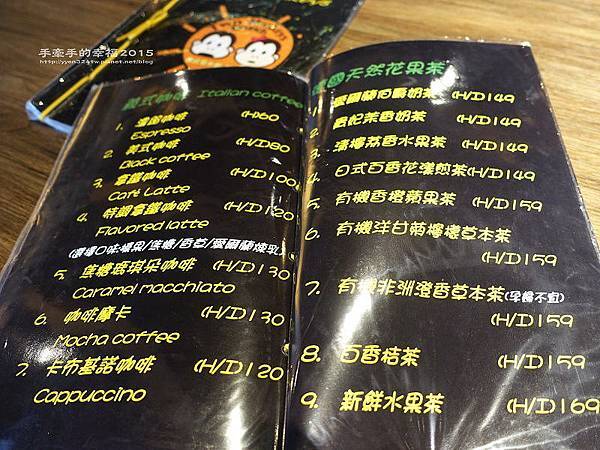 手牽手的幸福2015
http://yyen324tw.pixnet.net/blog
義式咖啡 Italian coffee
1. 濃縮咖啡 (H)60
Espresso
2. 美式咖啡 (H/D)80
Black coffee
3. 拿鐵咖啡 (H/D)100
Café Latte
4. 特調拿鐵咖啡 (H/D)120
Flavored latte
(選擇口味:榛果/焦糖/香草/愛爾蘭煉乳)
5. 焦糖瑪琪朵咖啡 (H/D)130
Caramel macchiato
6. 咖啡摩卡 (H/D)130
Mocha coffee
7. 卡布基諾咖啡 (H/D)120
Cappuccino
德國天然花果茶
1. 愛爾蘭伯爵奶茶 (H/D)149
2. 茶香奶茶 (H/D)149
3. 清檸荔香水果茶 (H/D)149
4. 日式百香花漾煎茶(H/D)149
5. 有機香橙蘋果茶 (H/D)159
6. 有機洋甘菊檸檬草本茶
(H/D)159
7. 有機非洲澄香草本茶(孕婦不宜)
(H/D)159
8. 百香桔茶 (H/D)159
9. 新鮮水果茶 (H/D)169